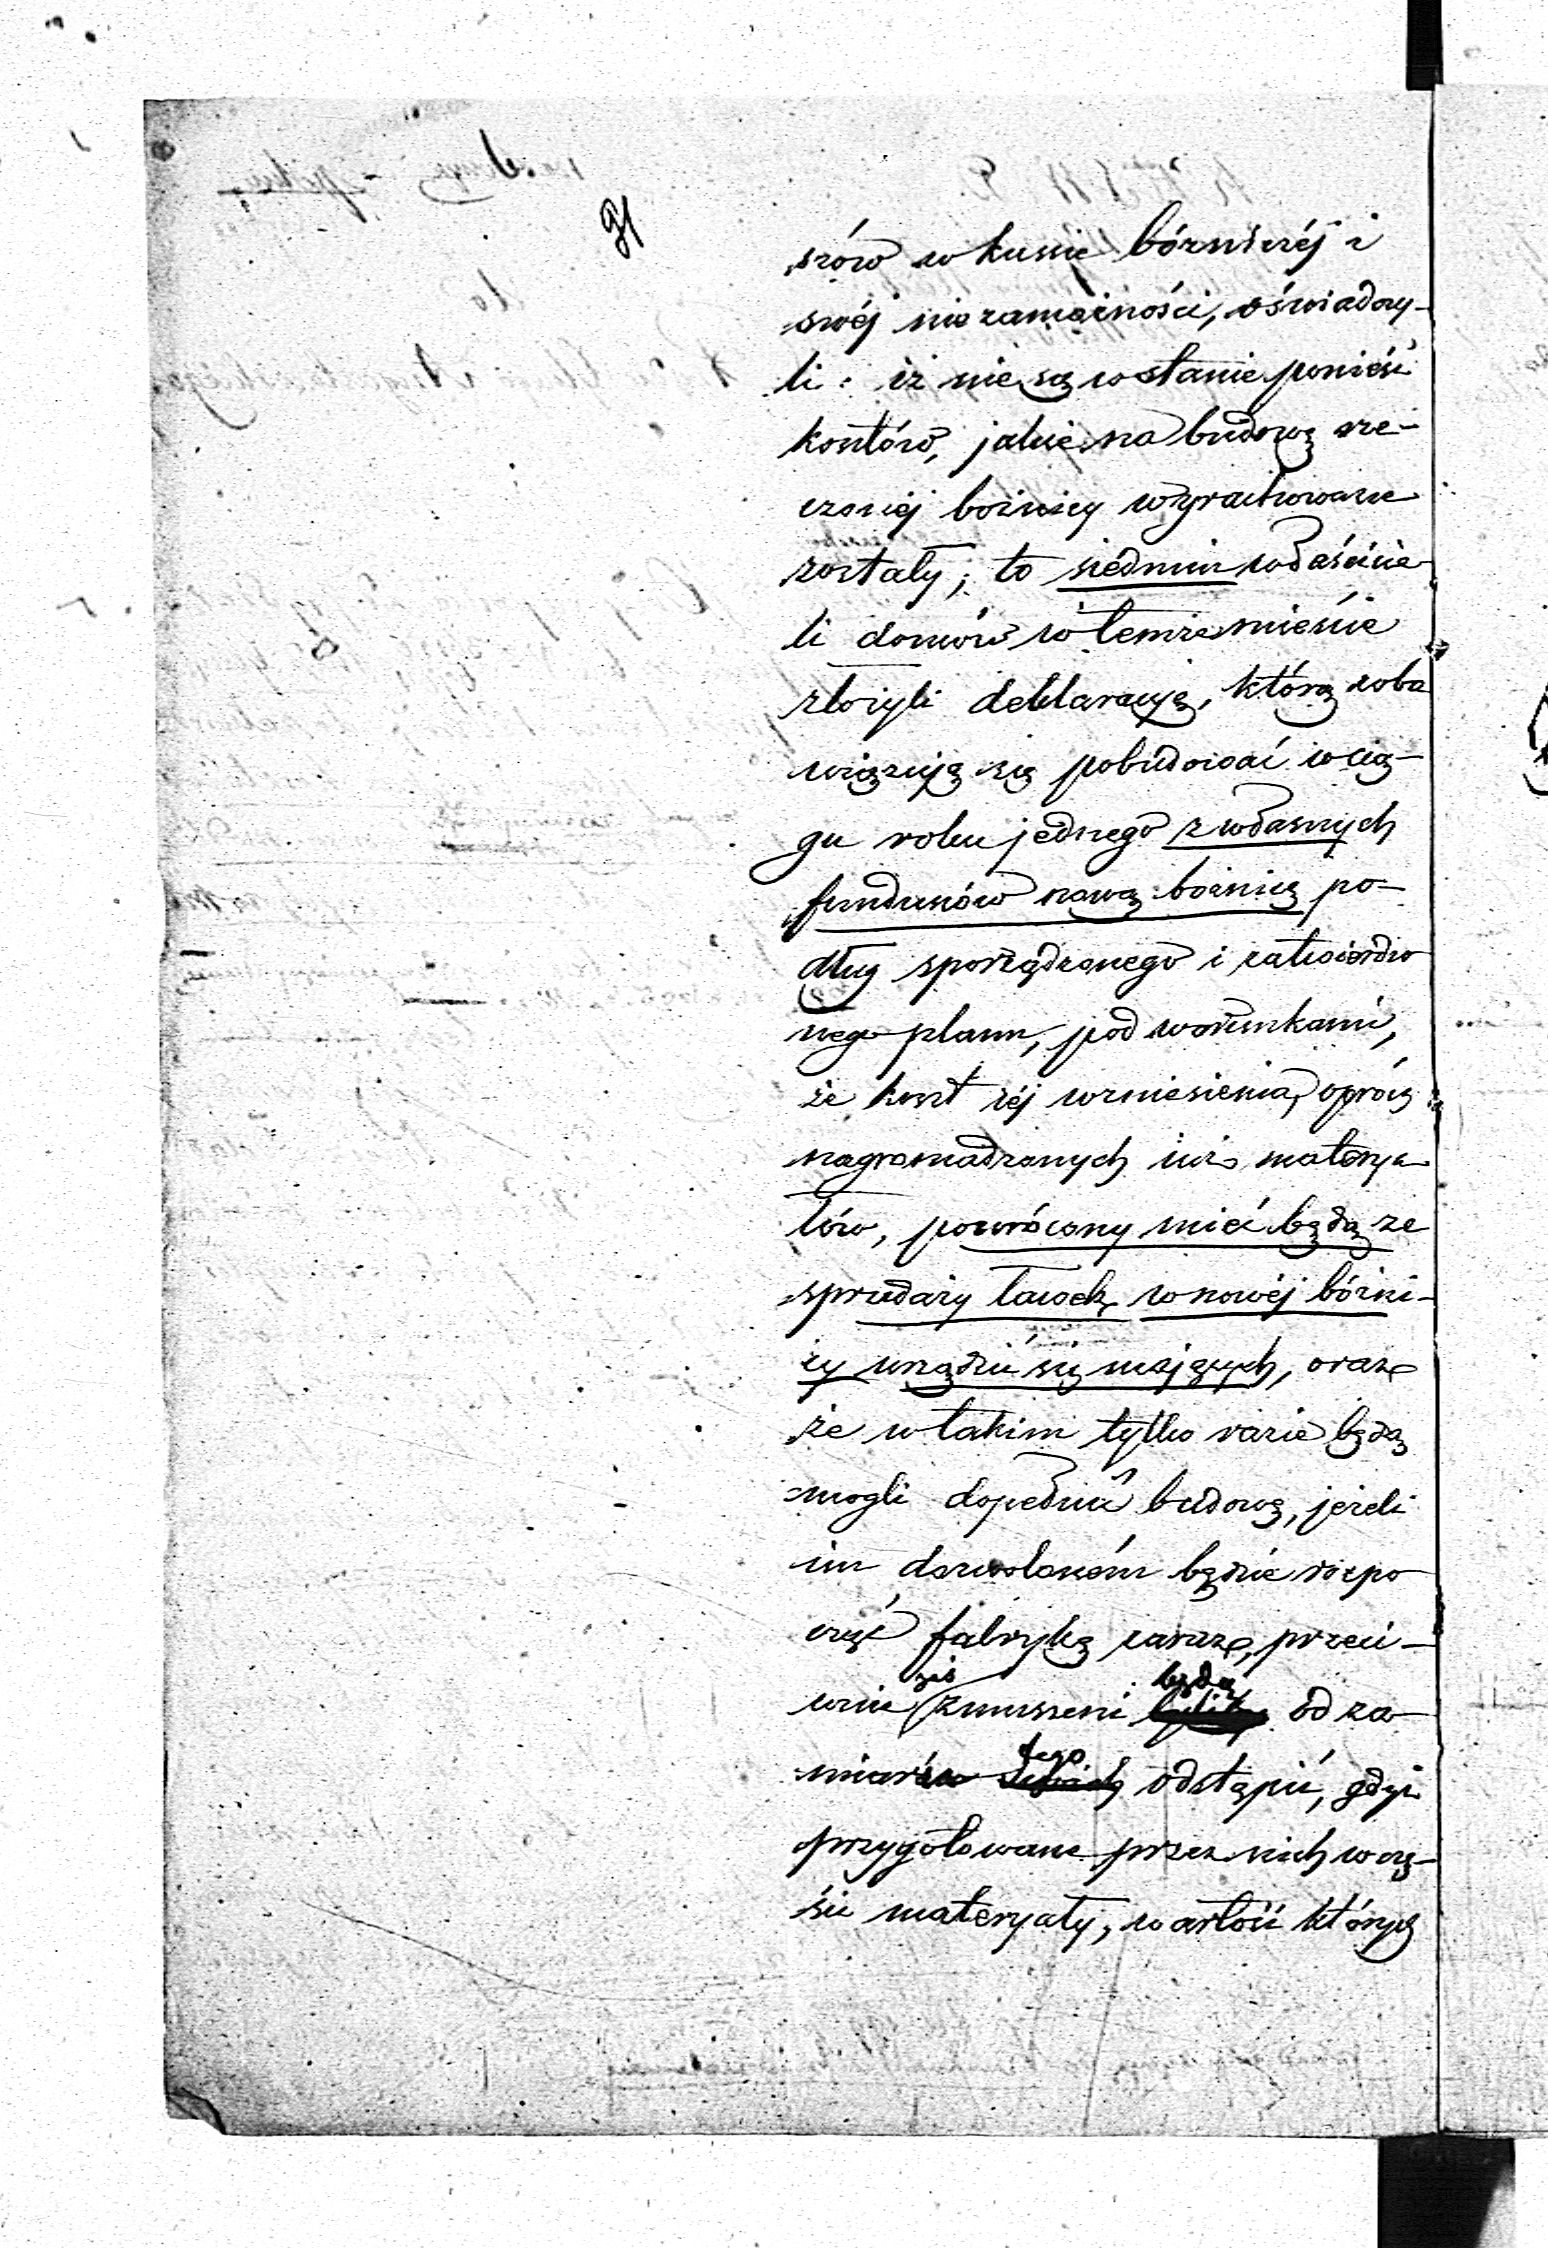 szów w kassie bóżniczéj i
swéj niezamożności, oświadczy-
li: iż nie są w stanie ponieść
kosztów, jakie na budowę rze-
czonéj bożnicy wyrachowane
zostały; to siedmiu właścicie-
li domów w temże mieście
złożyli deklaracyę, którą zoba
wiązują się pobudować w cią-
gu roku jednego z własnych
funduszów nową bożnicę po-
dług sporządzonego i zatwierdzo
nego planu, pod warunkami,
że koszt jéj wzniesienia, oprócz
nagromadzonych już materya
łów, powrócony mieć będą ze
sprzedaży ławek, w nowéj bóżni-
cy urządzić się mających, oraz
że w takim tylko razie będą
mogli dopełnić budowę, jeżeli
im dozwoloném będzie rozpo
cząć fabrykę zaraz, przeci-
wnie zaś zmuszeni będą od za-
miaru tego odstąpić, gdyż
przygotowane przez nich w czę-
ści materyały, wartość których